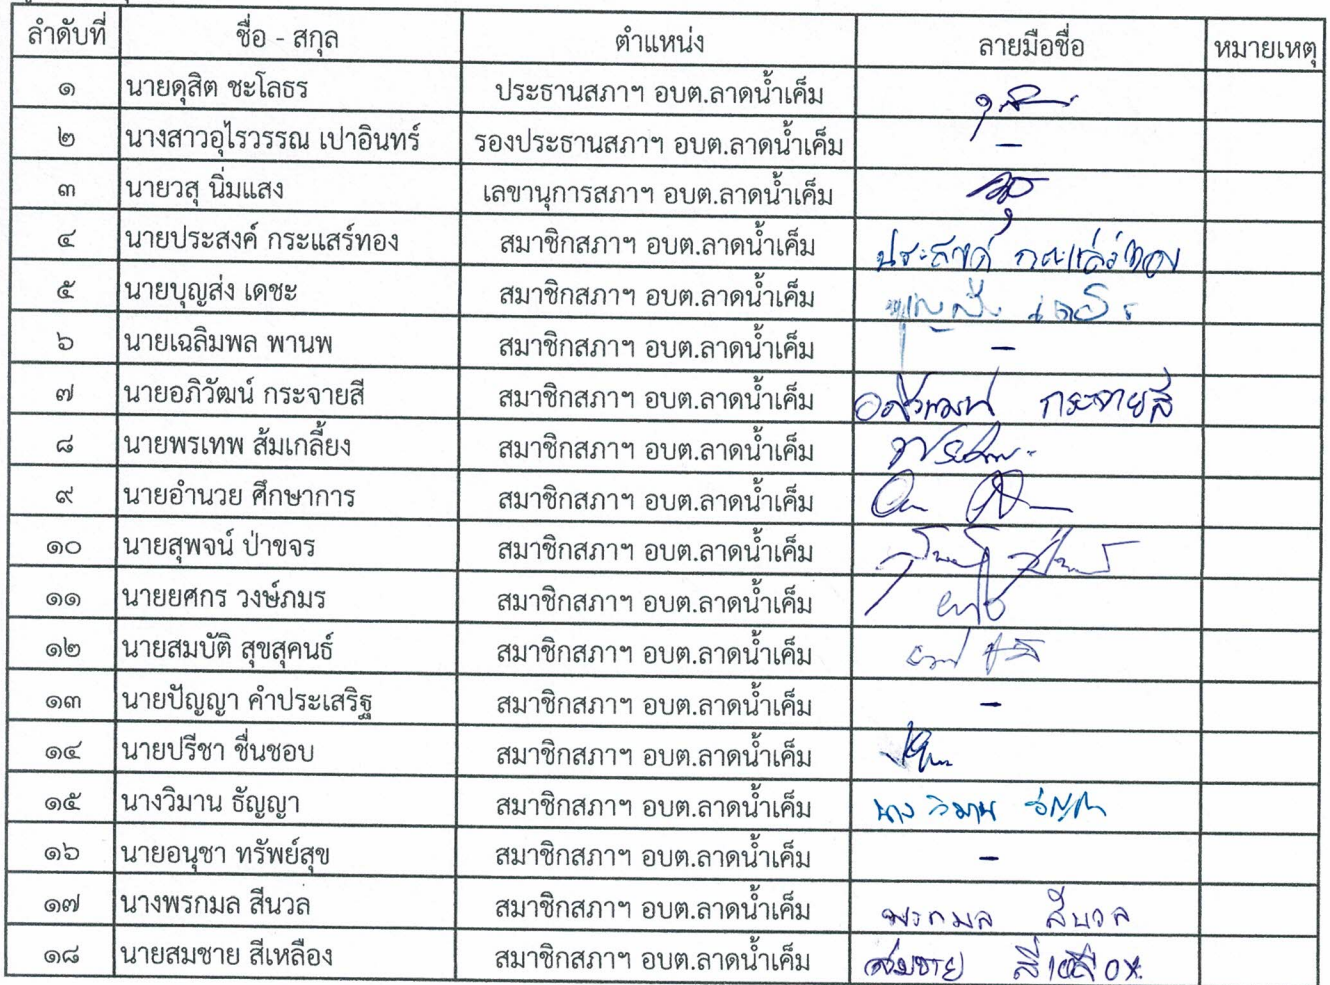 ลำดับที่ ชื่อ - สกุล ตำแหน่ง ลายมือชื่อ หมายเหตุ
๑ นายดุสิต ชะโลธร ประธานสภาฯ อบต.ลาดน้ำเค็ม
๒ นางสาวอุไรวรรณ เปาอินทร์ รองประธานสภาฯ อบต.ลาดน้ำเค็ม –
๓ นายวสุ นิ่มแสง เลขานุการสภาฯ อบต.ลาดน้ำเค็ม
๔ นายประสงค์ กระแสร์ทอง สมาชิกสภาฯ อบต.ลาดน้ำเค็ม ประสงค์ กระแสร์ทอง
๕ นายบุญส่ง เดชะ สมาชิกสภาฯ อบต.ลาดน้ำเค็ม
๖ นายเฉลิมพล พานพ สมาชิกสภาฯ อบต.ลาดน้ำเค็ม –
๗ นายอภิวัฒน์ กระจายสี สมาชิกสภาฯ อบต.ลาดน้ำเค็ม อภิวัฒน์ กระจายสี
๘ นายพรเทพ ส้มเกลี้ยง สมาชิกสภาฯ อบต.ลาดน้ำเค็ม
๙ นายอำนวย ศึกษาการ สมาชิกสภาฯ อบต.ลาดน้ำเค็ม
๑๐ นายสุพจน์ ป่าขจร สมาชิกสภาฯ อบต.ลาดน้ำเค็ม
๑๑ นายยศกร วงษ์ภมร สมาชิกสภาฯ อบต.ลาดน้ำเค็ม
๑๒ นายสมบัติ สุขสุคนธ์ สมาชิกสภาฯ อบต.ลาดน้ำเค็ม
๑๓ นายปัญญา คำประเสริฐ สมาชิกสภาฯ อบต.ลาดน้ำเค็ม –
๑๔ นายปรีชา ชื่นชอบ สมาชิกสภาฯ อบต.ลาดน้ำเค็ม
๑๕ นางวิมาน ธัญญา สมาชิกสภาฯ อบต.ลาดน้ำเค็ม นาง วิมาน ธัญญา
๑๖ นายอนุชา ทรัพย์สุข สมาชิกสภาฯ อบต.ลาดน้ำเค็ม –
๑๗ นางพรกมล สีนวล สมาชิกสภาฯ อบต.ลาดน้ำเค็ม พรกมล สีนวล
๑๘ นายสมชาย สีเหลือง สมาชิกสภาฯ อบต.ลาดน้ำเค็ม สมชาย สีเหลือง